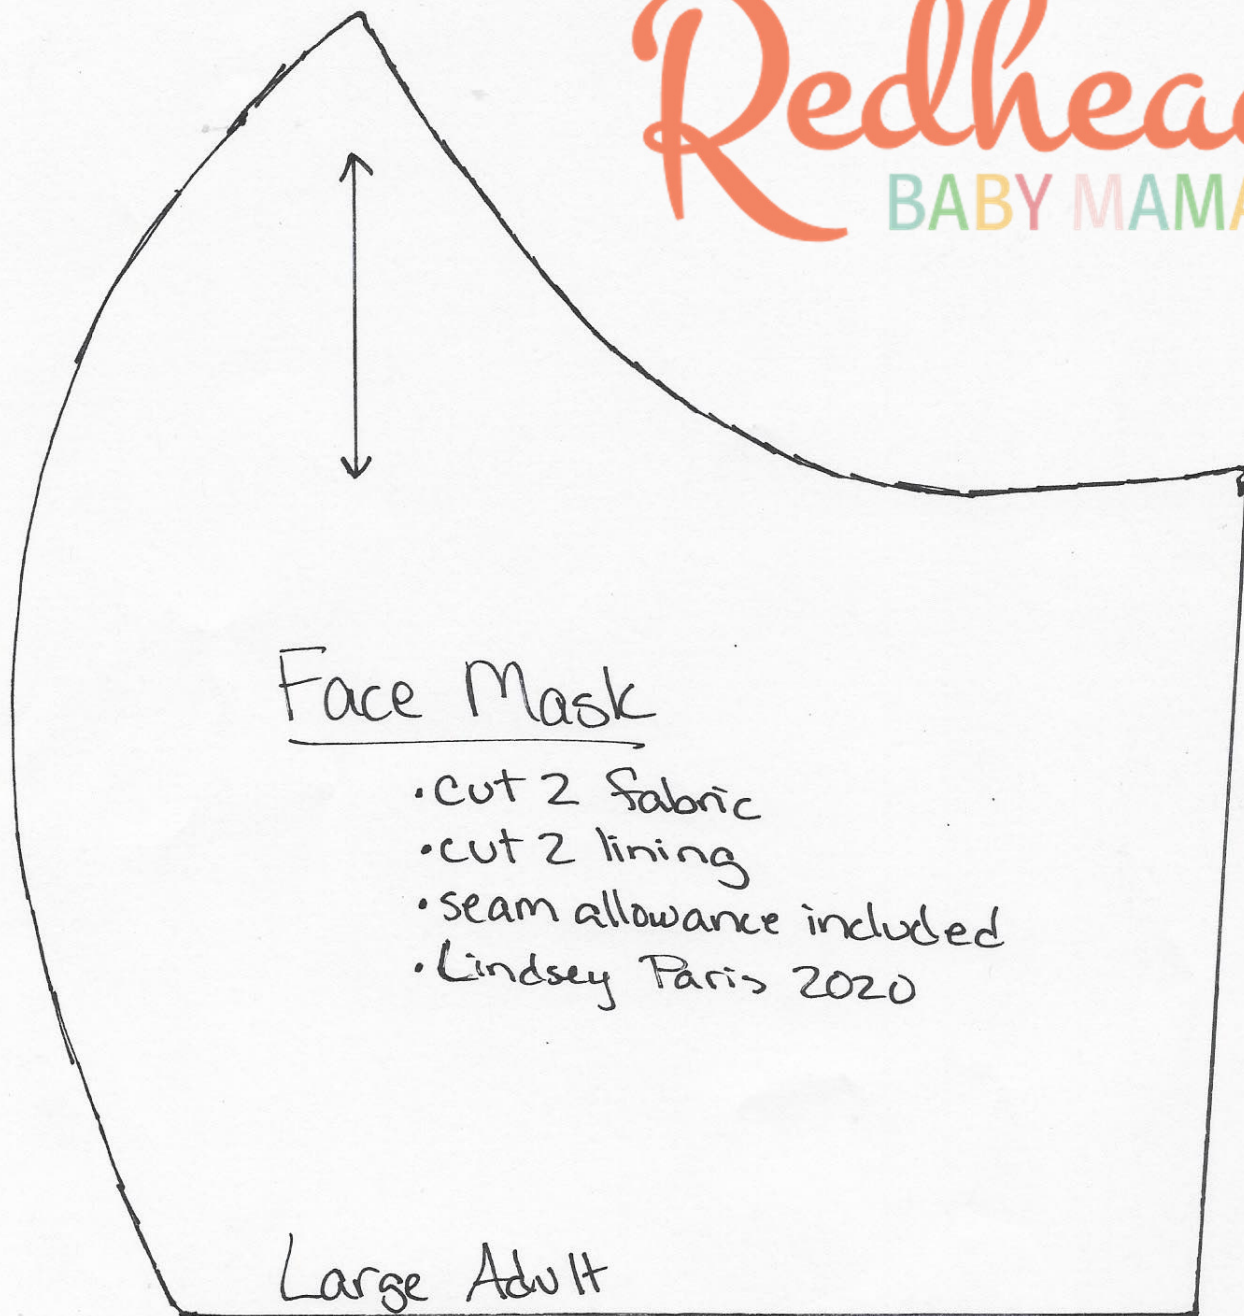 Redhea
BABY MAMA
Face Mask
•cut 2 fabric
•cut 2 lining
•seam allowance included
•Lindsey Paris 2020
Large Adult